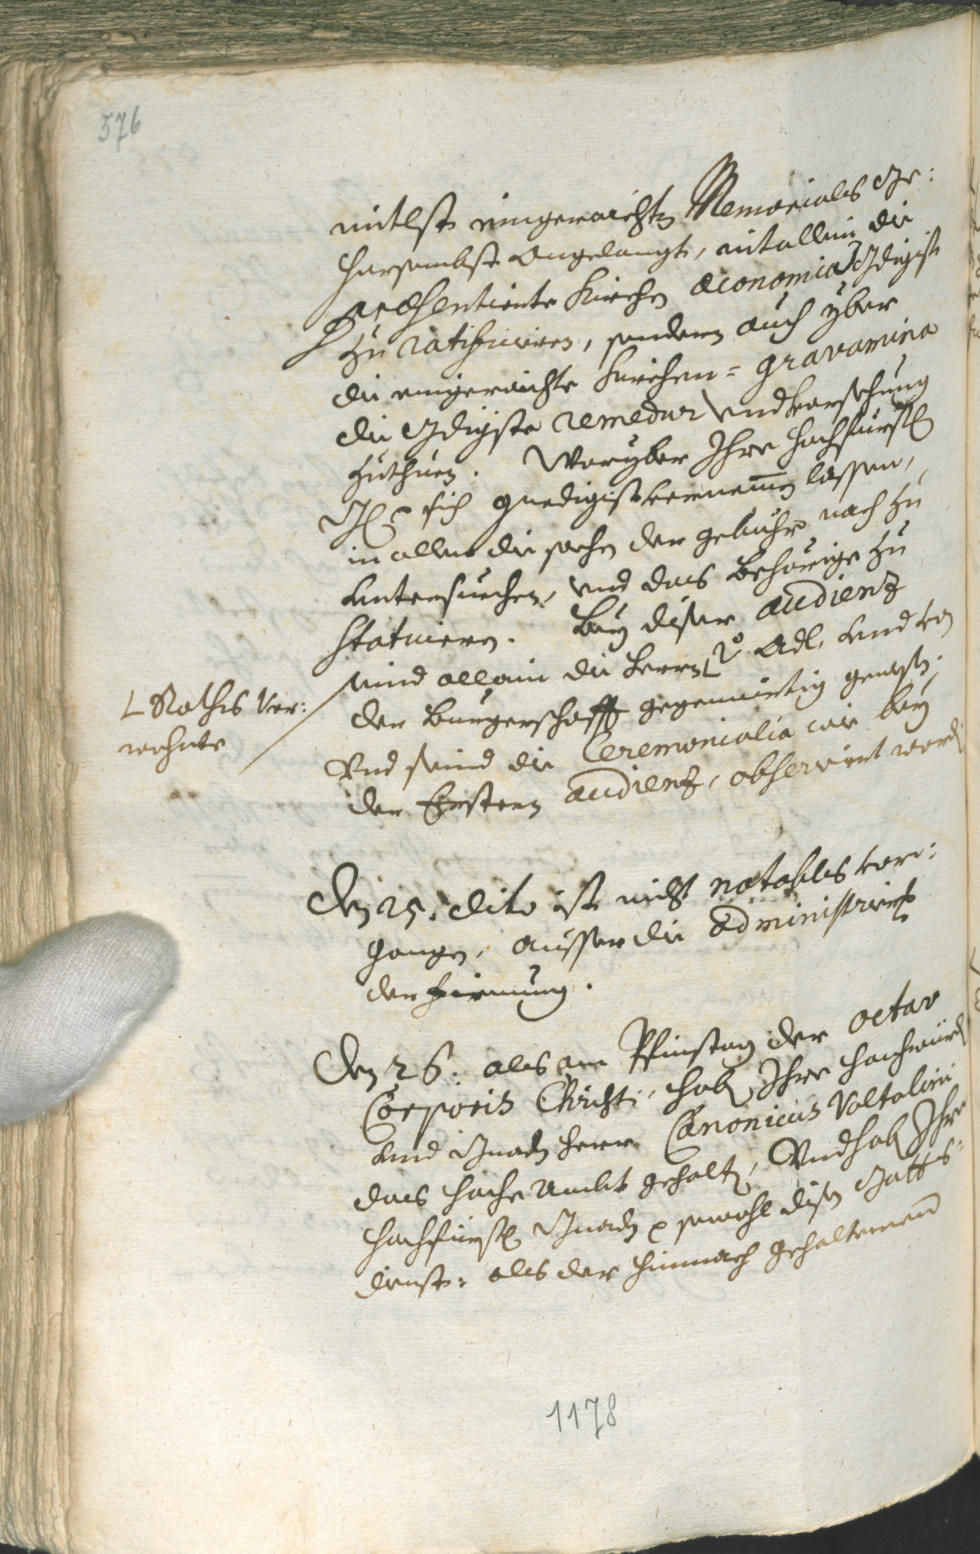 576
mitlst eingeraichtn Memorials Ge:
horsambst angelangt, nit allein die
præsentierte Kirchen œconomia Gdigist
zu ratificiern, sondern auch yber
die eingeraichte Kirchen= gravamina
die Gdigste remedur und vorsehung
zuthuen. Woryber Ihre hochfürstl
Gl: sich gnedigist vernemen lassen,
in allem die sachen der gebühr nach zu
untersuchen, und das behörige zu
statuiern. Bey diser audienz
seind allain die herrn 2 Adl. und von
der Burgerschafft gegenwirtig gewesn,
Und seind die Ceremonialia wie bey
der Erstern audienz, observirt wordn
L Raths Ver:
wohnte
Den 25. dito ist nicht notables vor:
gangen, ausser die administrirung
der firmung.
Den 26. als am Pfinstag der octav
Corporis Christi, hab Ihre hochwürd
und Gnadn herr Canonicus Voltolini
das hoche Ambt gehaltn, Und hab Ihre
hochfürstl Gnadn sowohl disn Gotts
dienst: als der hernach gehaltenen
1178